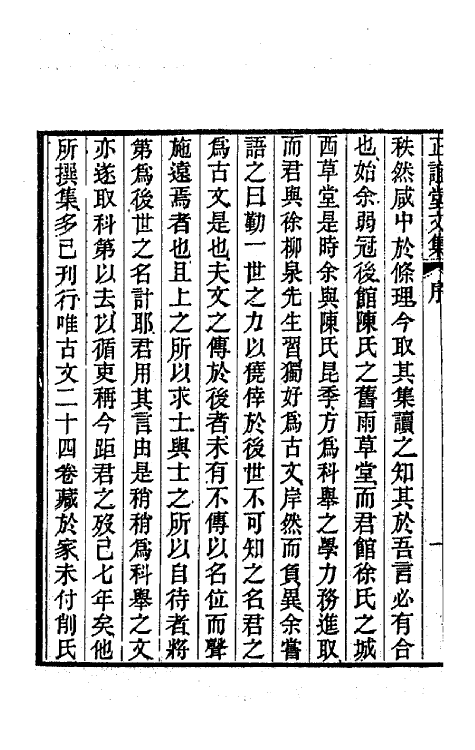 正誼堂文集 序 一
秩然咸中於條理今取其集讀之知其於吾言必有合
也始余弱冠後館陳氏之舊雨草堂而君館徐氏之城
西草堂是時余與陳氏昆季方爲科舉之學力務進取
而君與徐柳泉先生習獨好爲古文岸然而負異余嘗
語之曰勤一世之力以僥倖於後世不可知之名君之
爲古文是也夫文之傳於後者未有不傳以名位而聲
施遠焉者也且上之所以求士與士之所以自待者將
第爲後世之名計耶君用其言由是稍稍爲科舉之文
亦遂取科第以去以循吏稱今距君之歿已七年矣他
所撰集多已刊行唯古文二十四卷藏於家未付削氏